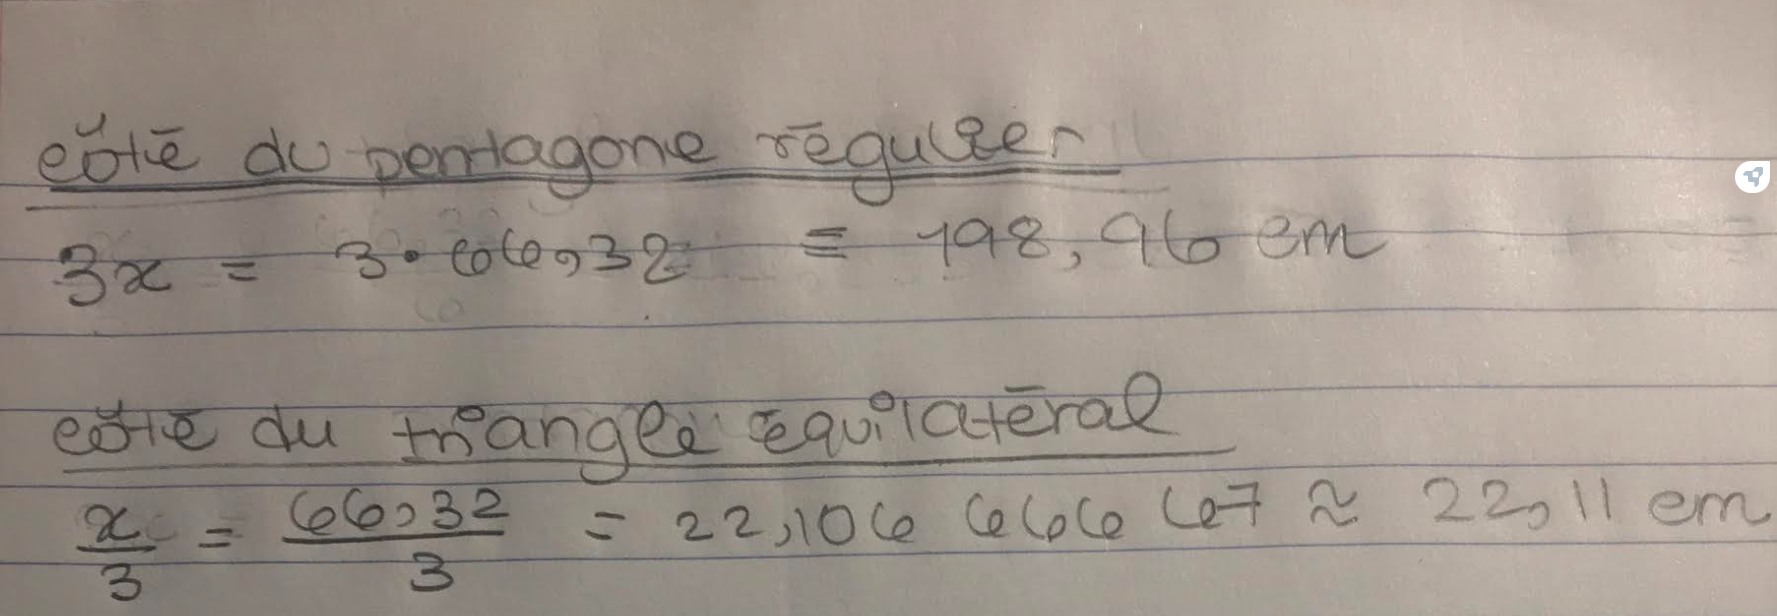 côté du pentagone régulier
3x = 3 • 66,32 = 198,96 cm
côté du triangle équilatéral
x/3 = 66,32/3 = 22,106 666 67 ≈ 22,11 cm